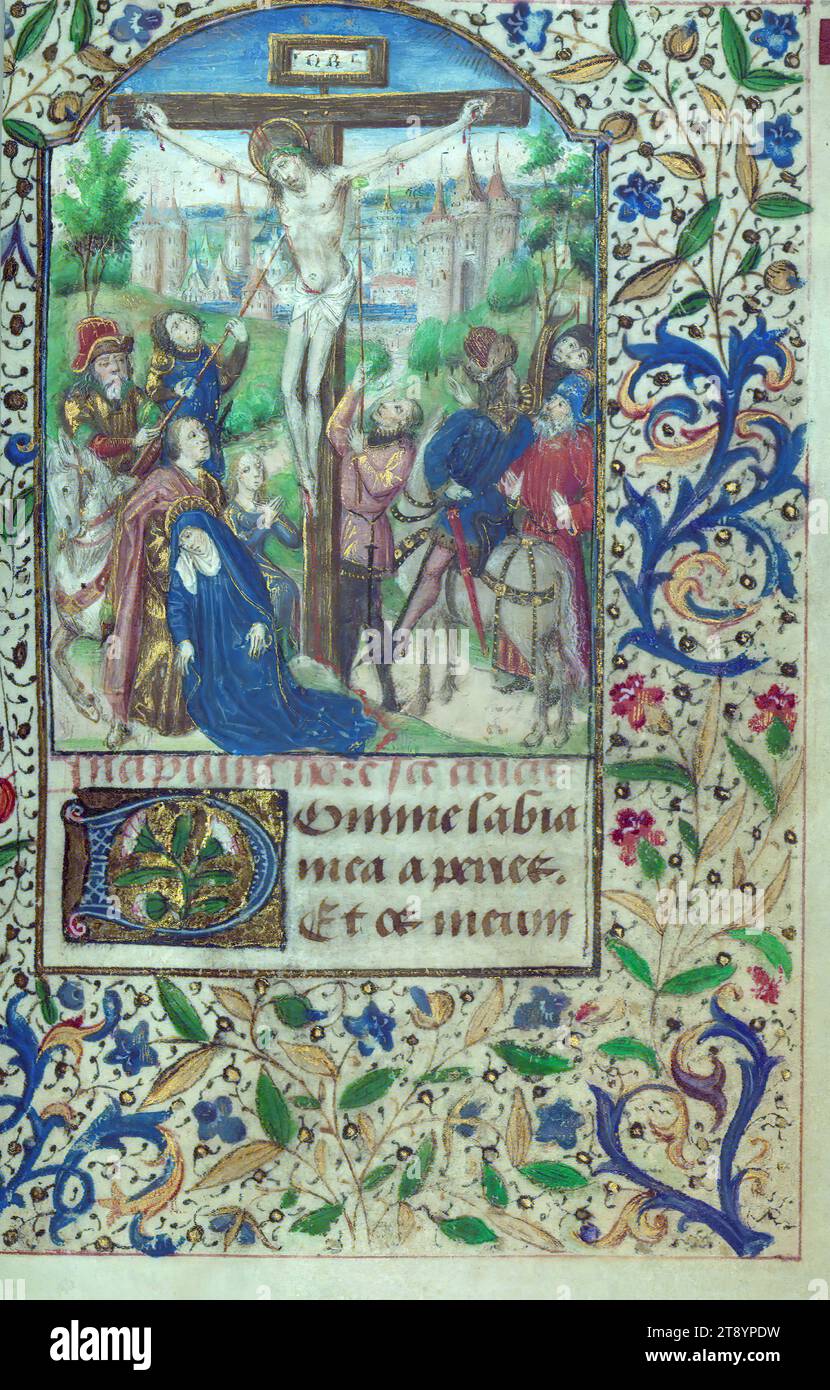 Incipiunt hore sce crucis
Domine labia
mea aperies.
Et os meum
alamy
Image ID: 2T8YPDW
www.alamy.com